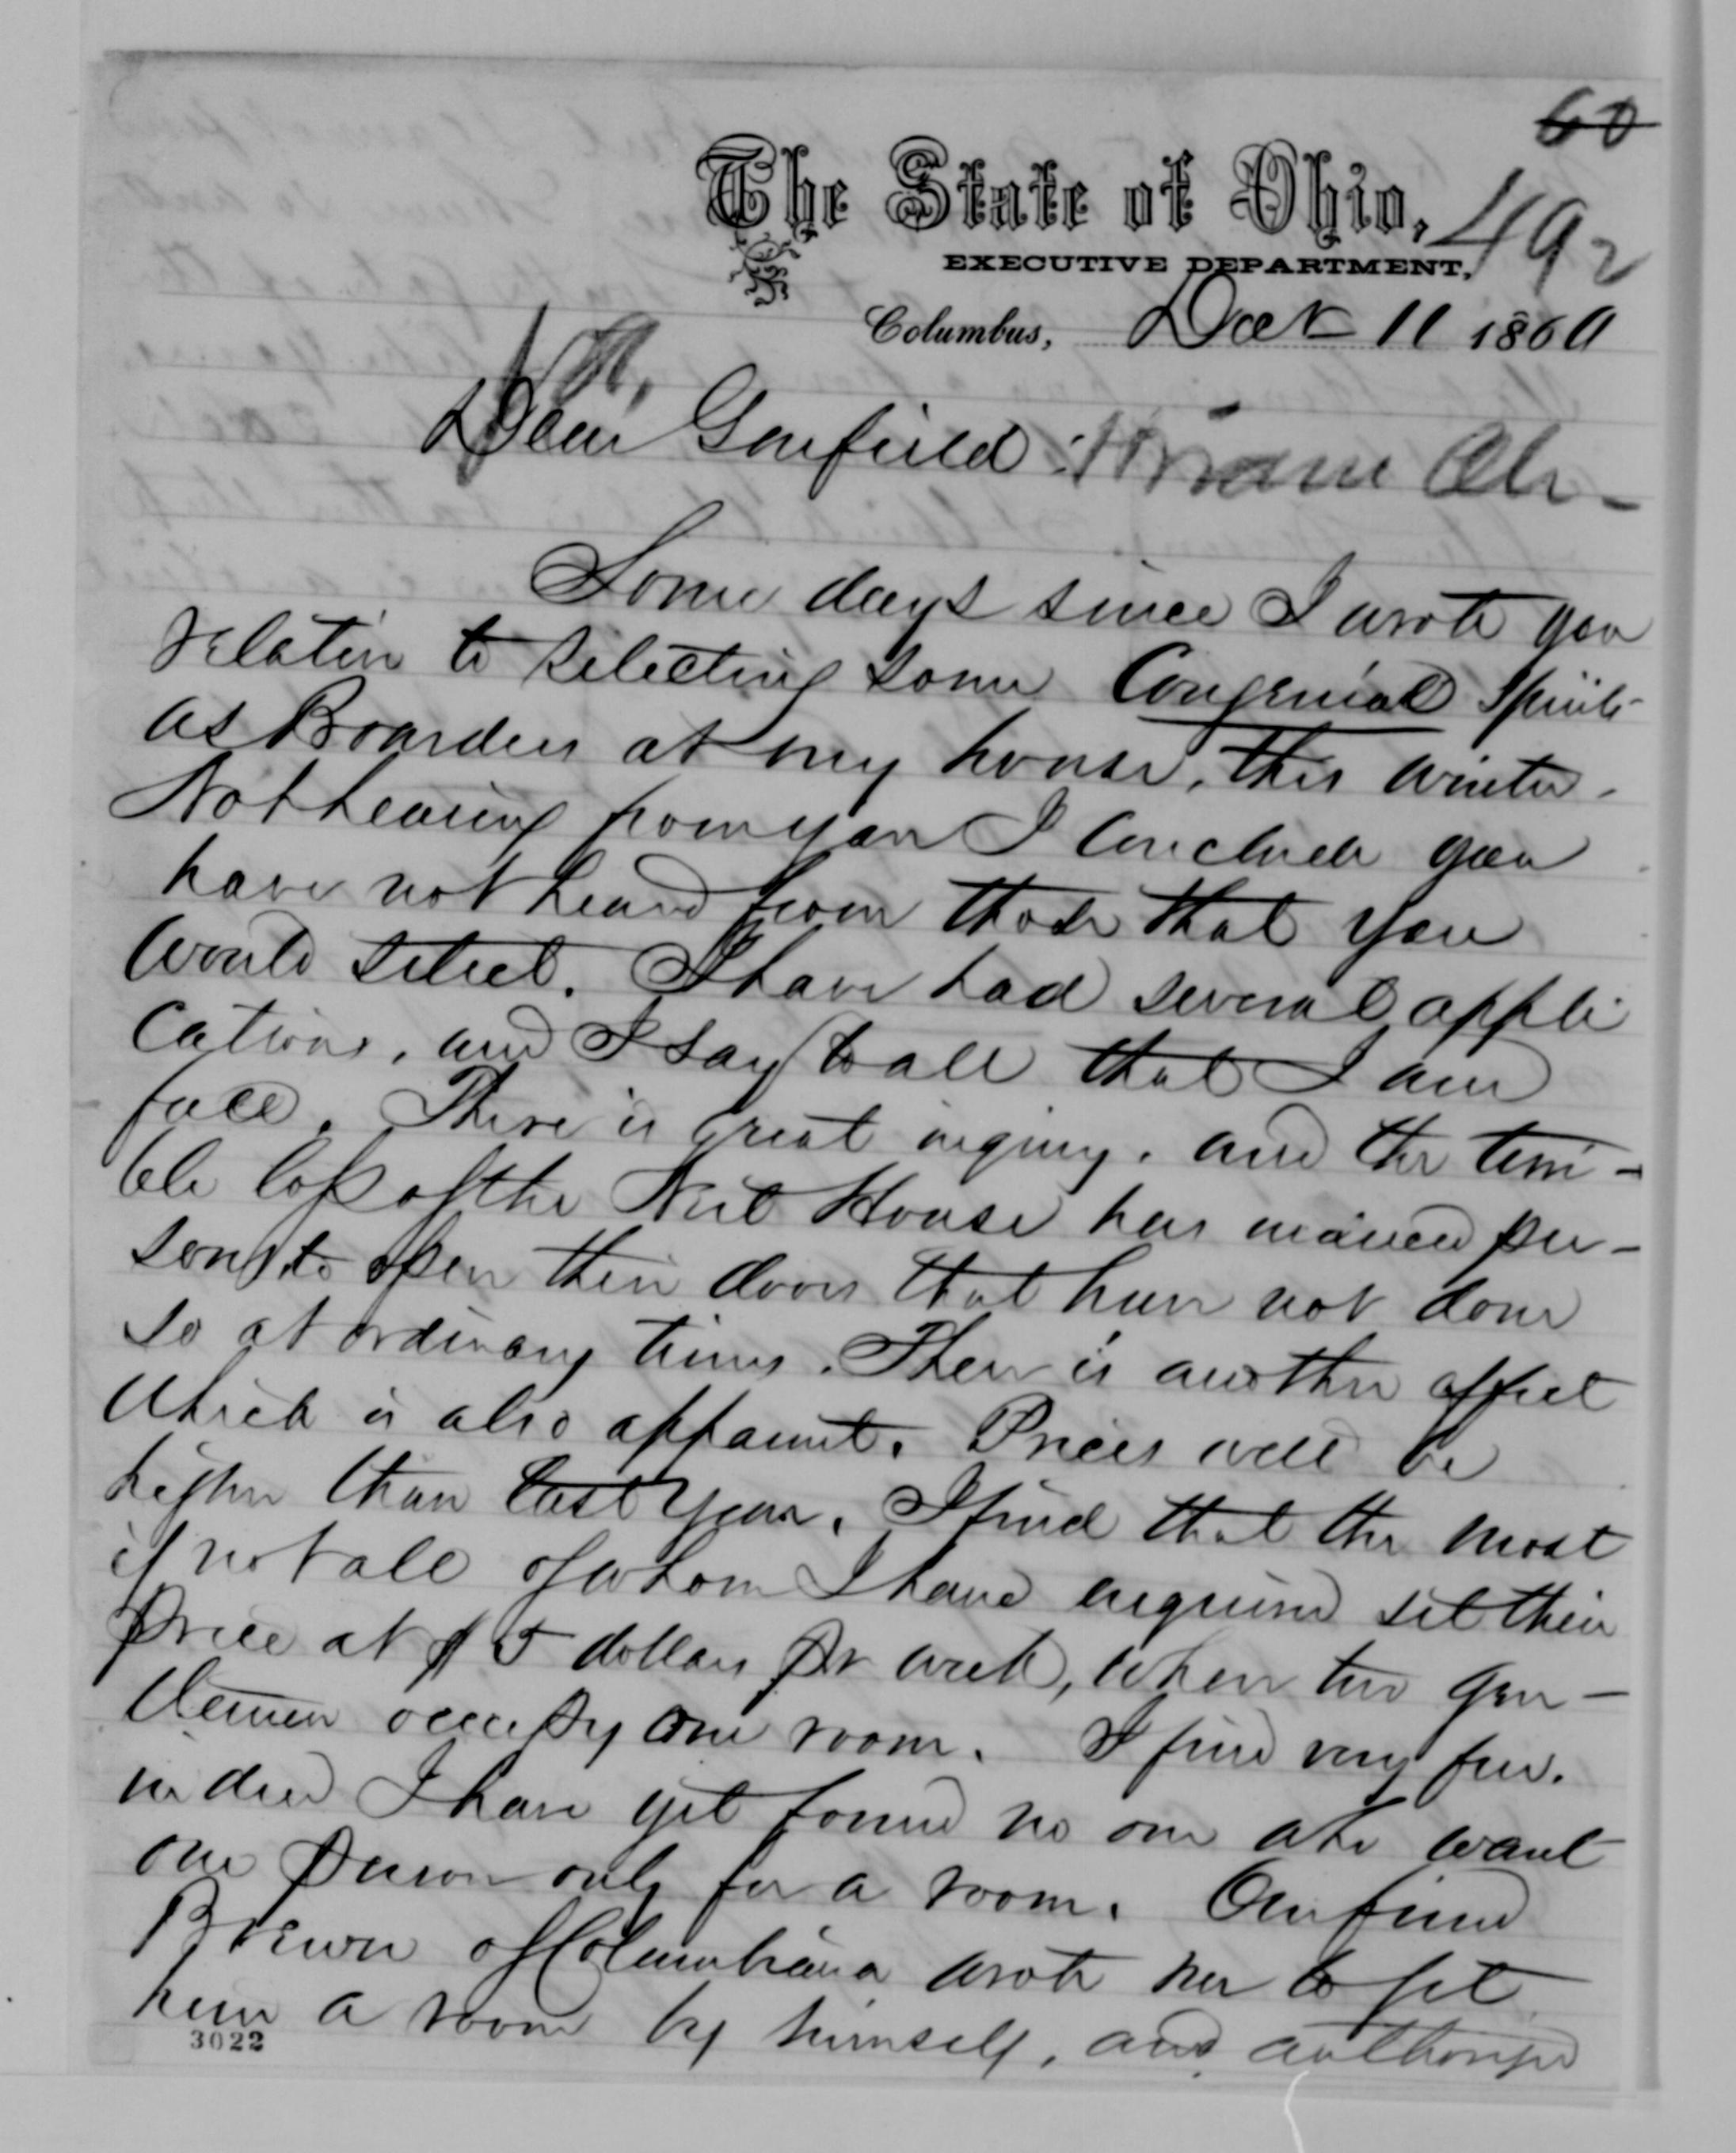 60
The State of Ohio,
492
EXECUTIVE DEPARTMENT,
Columbus, Dec 11 1860
Dear Garfield: Hiram Oh-
Some days since I wrote you
relative to selecting some Congenial Spirits
as Boarders at my house, this winter.
Not hearing from you I conclude you
have not heard from those that you
would select. I have had several appli
cations, and I say to all that I am
full. There is great inquiry. and the terri-
ble loss of the Neil House has induced per-
sons to open their doors that have not done
so at ordinary times. There is another effect
which is also apparent. Prices will be
higher than last year. I find that the most
if not all of whom I have enquired set their
price at $5 dollars pr week, when two gen-
tlemen occupy one room. I find very few.
indeed I have yet found no one who want
one person only for a room. Our friend
Brewer of Columbiana wrote me to get
him a room by himself, and authorized
3022